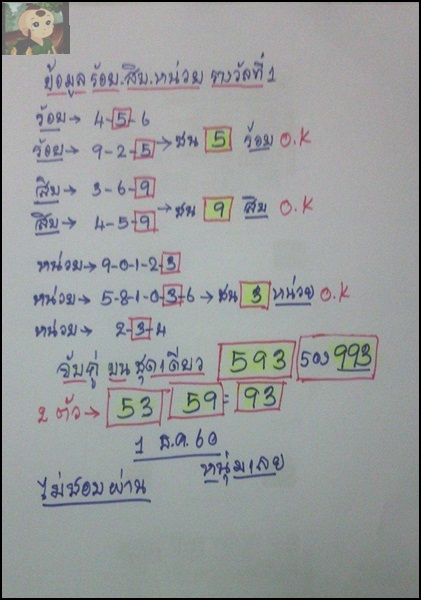 ข้อมูล ร้อย.สิบ.หน่วย รางวัลที่ 1
ร้อย→ 4-5-6
ร้อย→ 9-2-5 →ชน 5 ร้อย O.K
สิบ→ 3-6-9
สิบ→ 4-5-9 →ชน 9 สิบ O.K
หน่วย→9-0-1-2-3
หน่วย→ 5-8-1-0-3-6 →ชน 3 หน่วย O.K
หน่วย→ 2-3-4
จับคู่ บนชุดเดียว 593 รอง 993
2 ตัว→ 53 59= 93
1 ธ.ค. 60
หนุ่มเลย
ไม่ชอบผ่าน